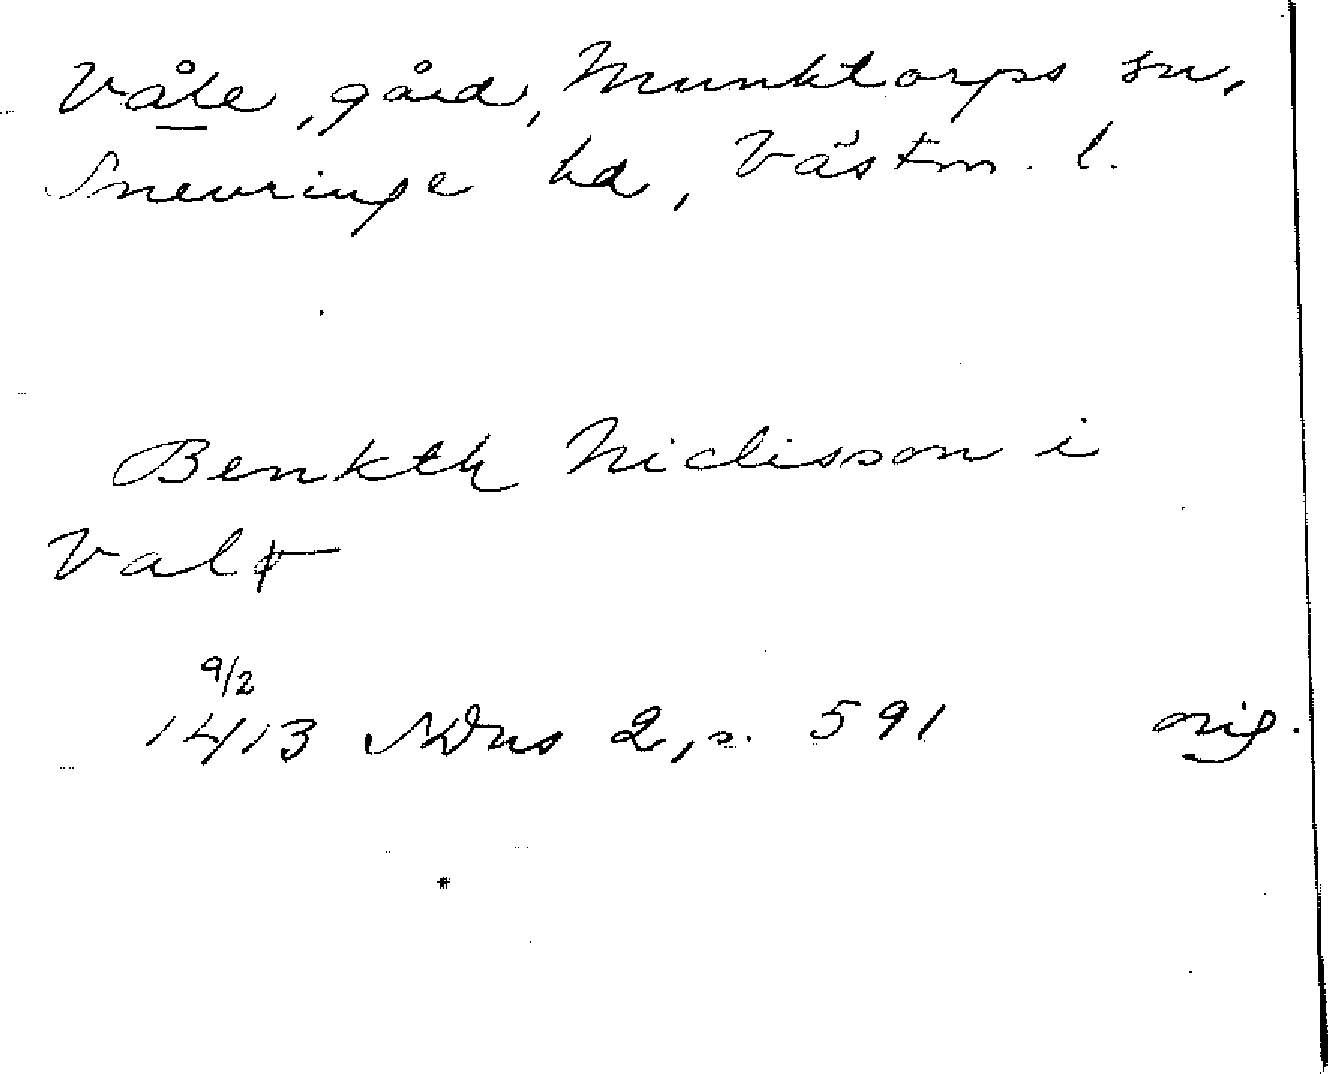 Våle, gård, Munktorps sn,
Snevringe hd, Västm. l.
Benkth Niclisson i
Valø
9/2
1413 SDns 2, s. 591 orig.